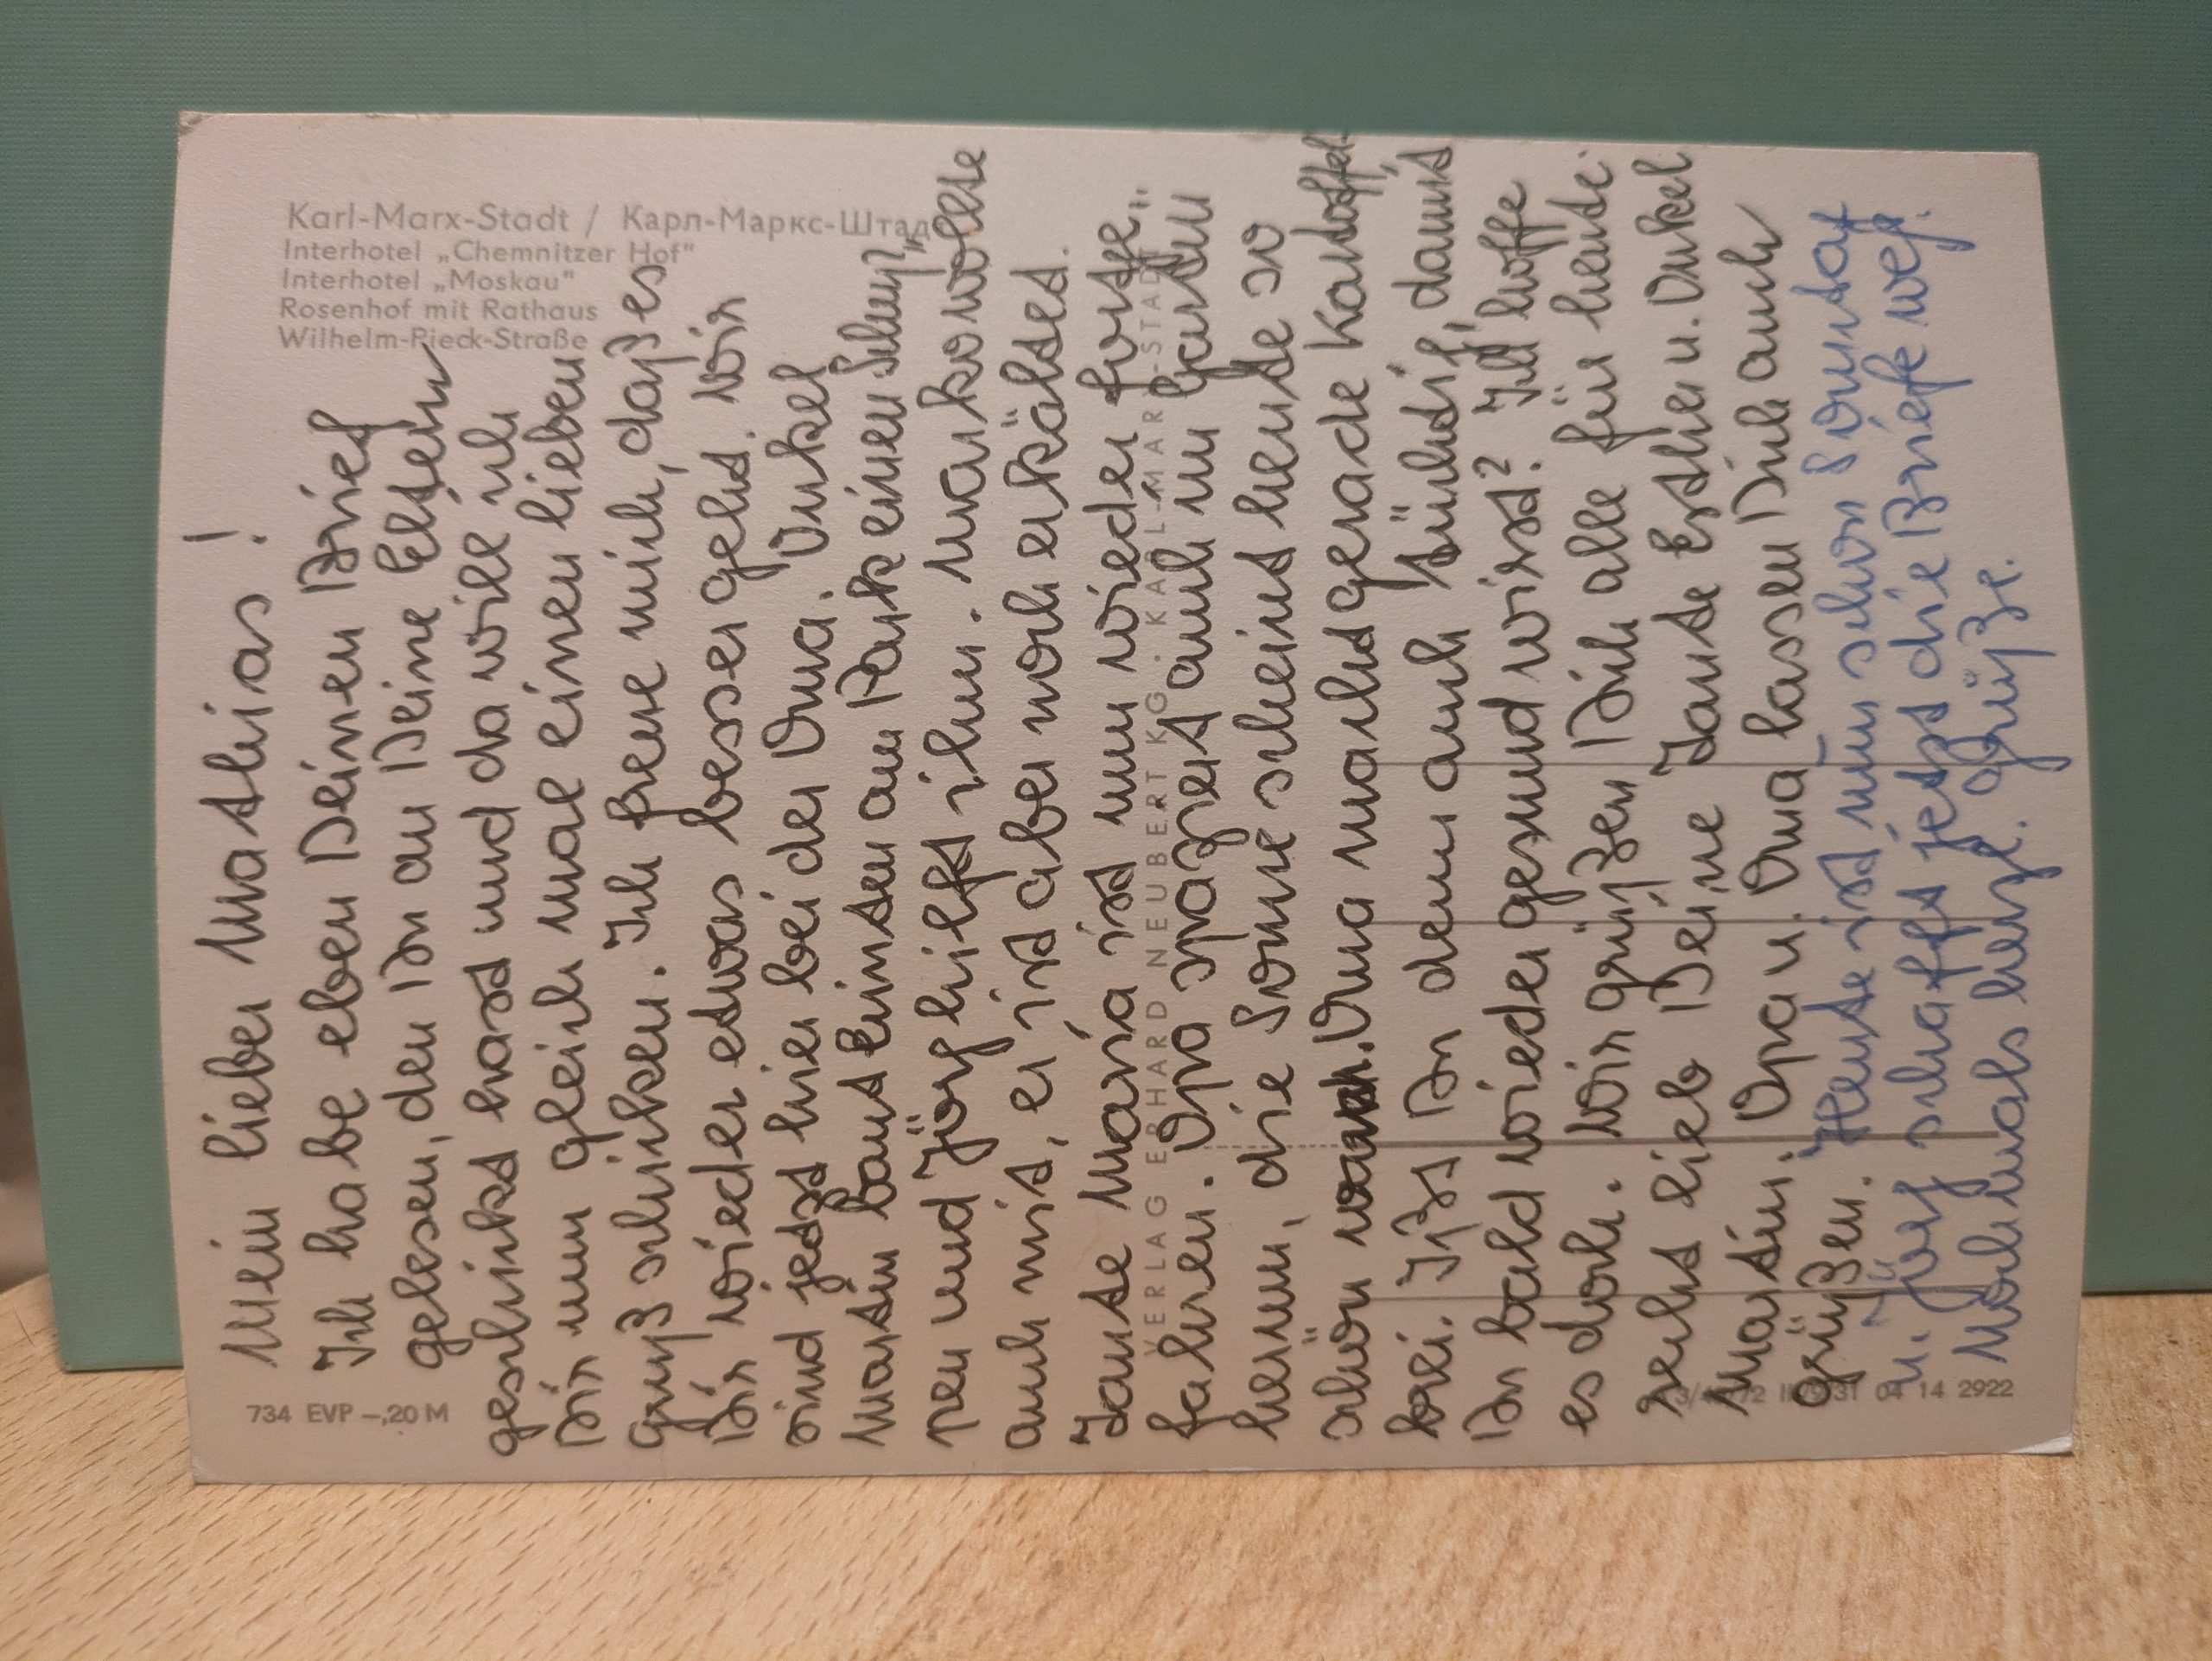 Karl-Marx-Stadt / Карл-Маркс-Штадт
Interhotel „Chemnitzer Hof“
Interhotel „Moskau“
Rosenhof mit Rathaus
Wilhelm-Pieck-Straße
Mein lieber Matthias!
Ich habe eben Deinen Brief
gelesen, den Du an Deine Eltern
geschickt hast und da will ich
Dir nun gleich mal einen lieben
Gruß schicken. Ich freue mich, daß es
Dir wieder etwas besser geht. Wir
sind jetzt hier bei der Oma. Onkel
Martin baut hinten am Park einen
pen und Jörg hilft ihm. Marko wollte
auch mit, er ist aber noch erkältet.
Tante Maria ist nun wieder fortge-
fahren. Opa spaziert auch im Garten
herum, die Sonne scheint heute so
schön warm. Oma macht gerade Kartoffel-
brei. Ißt Du denn auch tüchtig, damit
Du bald wieder gesund wirst? Ich hoffe
es doch. Wir grüßen Dich alle für heute
recht lieb Deine Tante Esther u. Onkel
Martin. Opa u. Oma lassen Dich auch
grüßen. Heute ist nun schon Sonntag
u. Jörg schafft jetzt die Briefe weg.
Nochmals herzl. Grüße.
VERLAG ERHARD NEUBERT KG. KARL-MARX-STADT
734 EVP –,20 M
04 14 2922